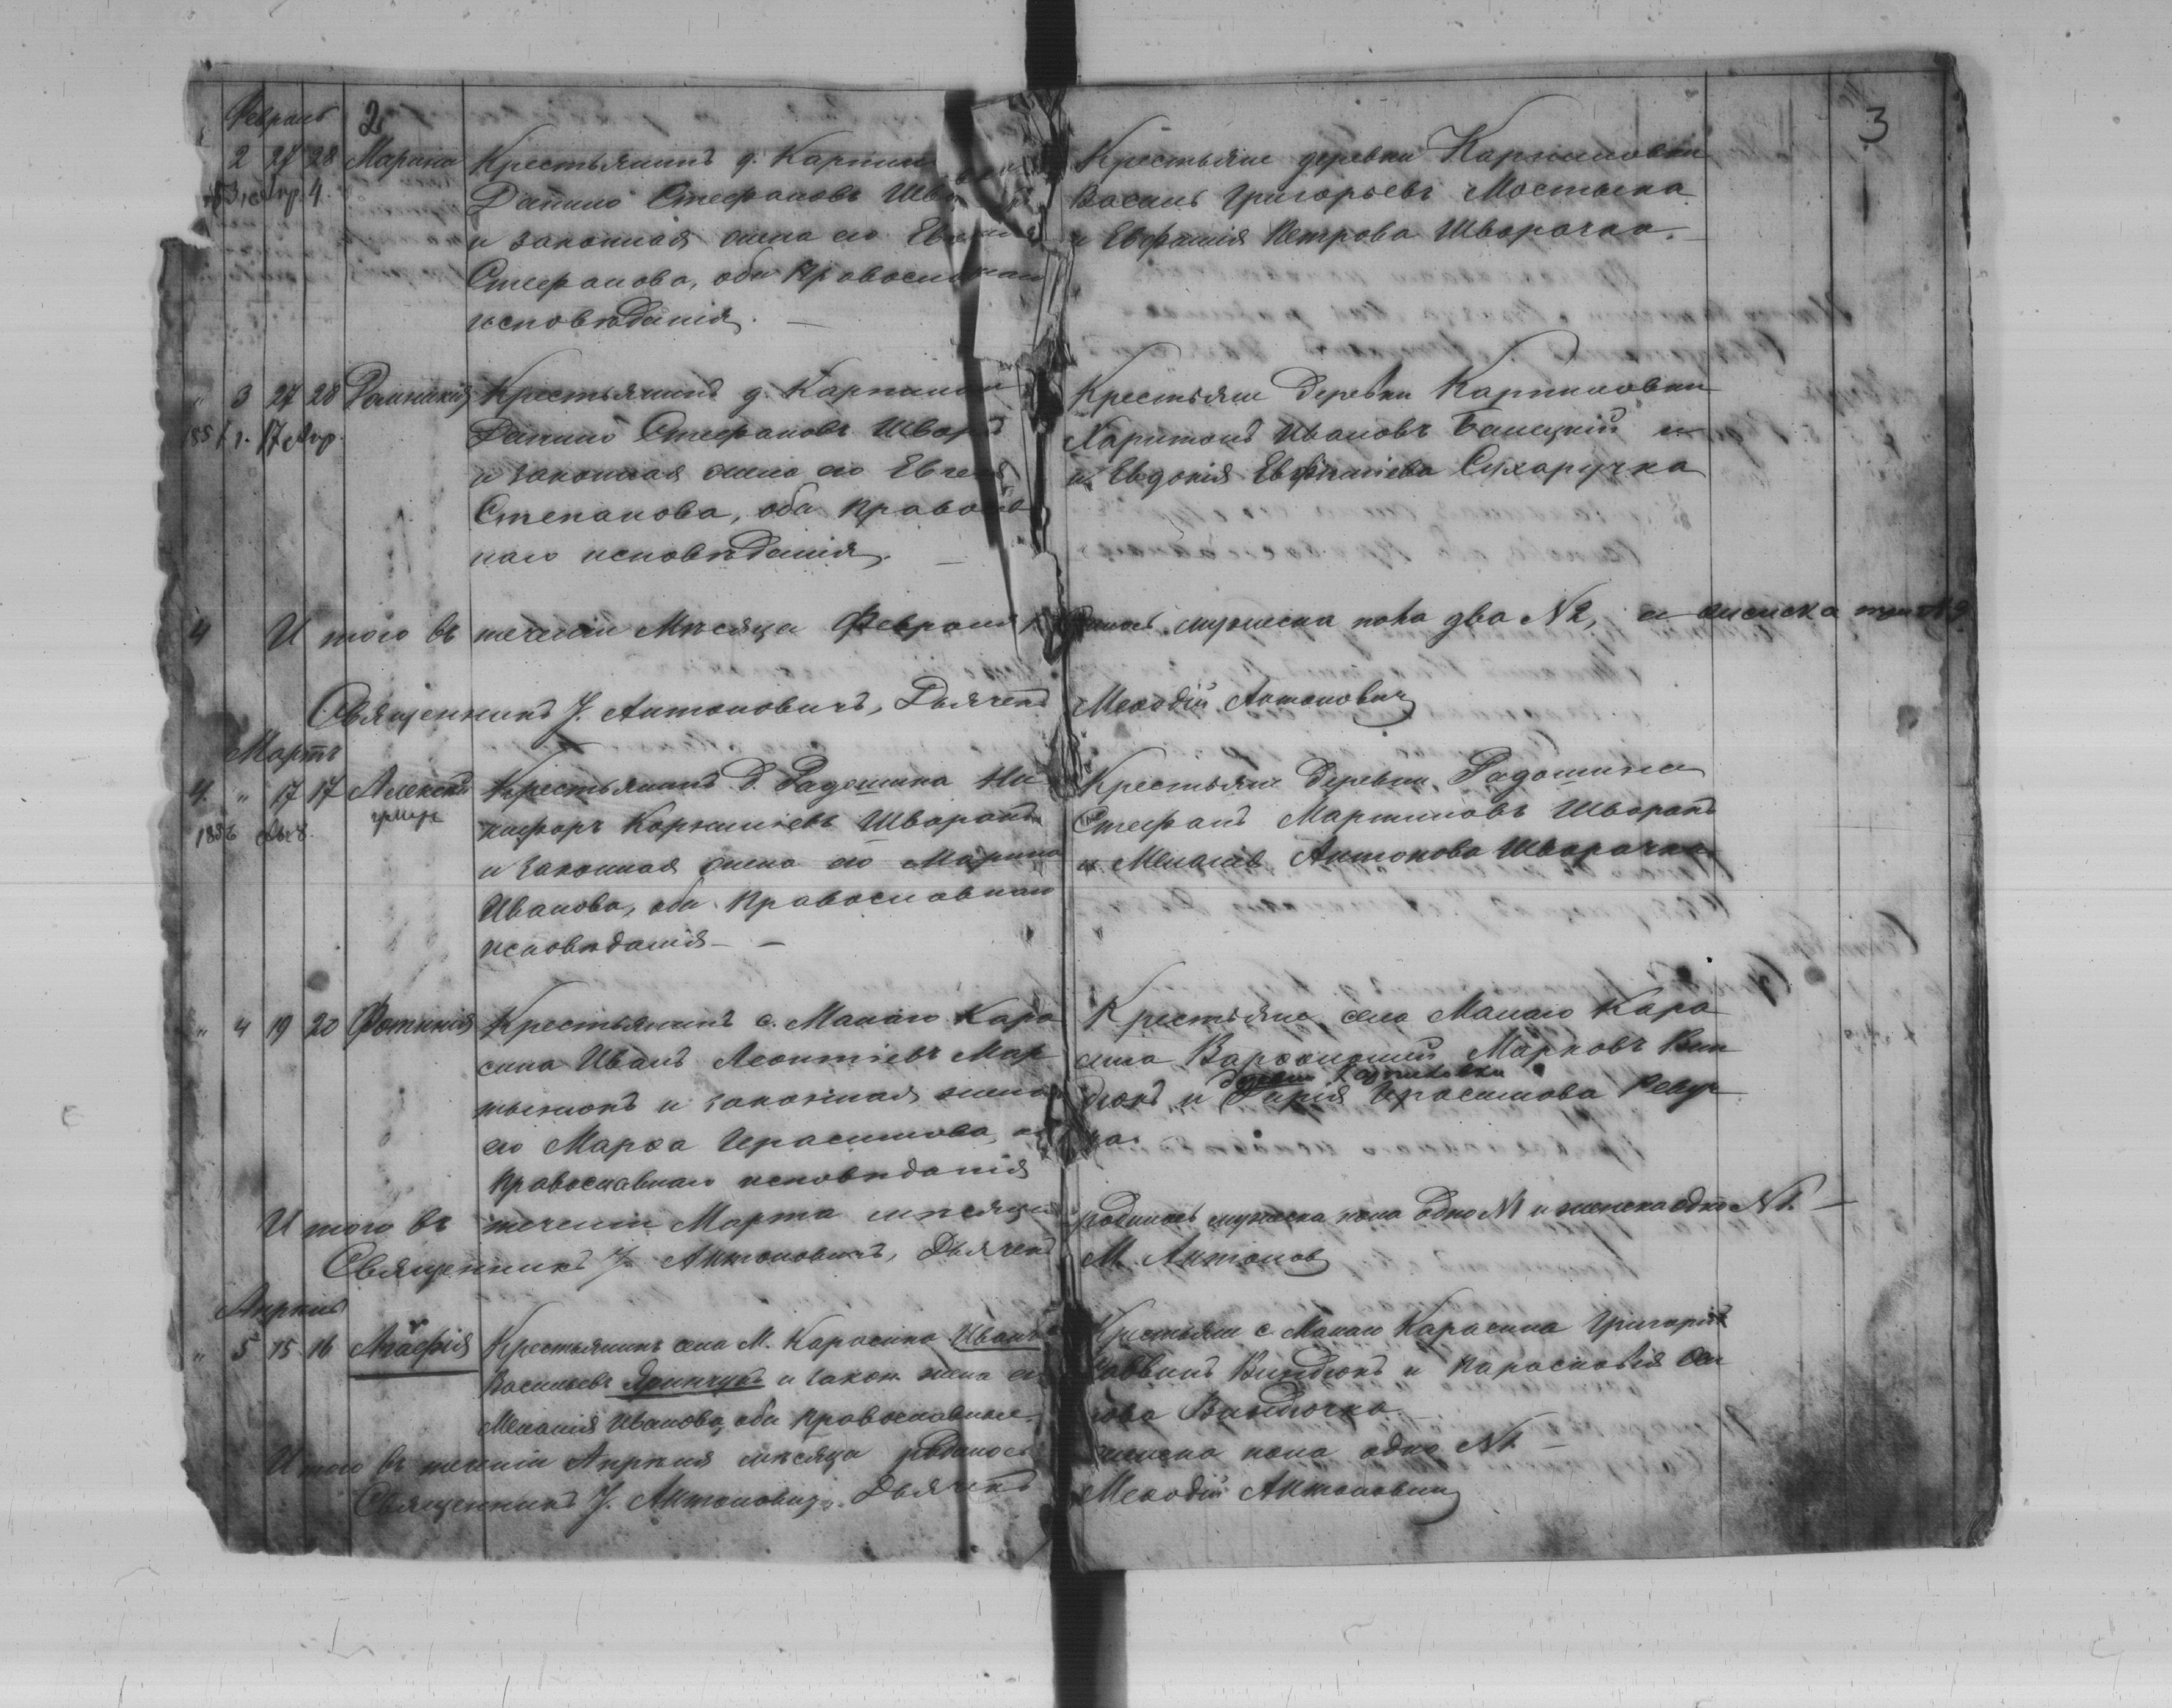 Февраль
2
2 27 28 Марина Крестьянинъ д. Карпил
Данило Стефановъ Шво
и законная жена его Евгенія
Стефанова, оба православнаго
исповѣданія. —
Крестьяне деревни Карпиловки
Василь Григорьевъ Мостыка
и Евфимія Петрова Шворачка.
3
" 3 27 28 Крестьянинъ д. Карпилов
17 Апр.
Данило Стефановъ Швора
и законная жена его Евгенія
Степанова, оба православ
наго исповѣданія. —
Крестьяне деревни Карпиловки
Харитонъ Ивановъ Банацкій и
и Евдокія Евфиміева Сухаручка
4 Итого въ теченіи мѣсяца Февраля родилось мужеска пола два №2, а женска три №3
Священникъ І. Антоновичъ, Дьячекъ Меѳодій Антоновичъ
Мартъ
4 " 17 17 Александръ Крестьянинъ д. Радошина Ни
умеръ
кифоръ Корниліевъ Шворакъ
и законная жена его Марина
Иванова, оба православнаго
исповѣданія — —
Крестьяне деревни Радошина
Стефанъ Мартиновъ Шворакъ
и Меланія Антонова Шворачка
" 4 19 20 Фотинія Крестьянинъ с. Малаго Кара
сина Иванъ Леонтіевъ Мар
тынюкъ и законная жена
его Марѳа Герасимова, об
православнаго исповѣданія
Крестьяне села Малаго Кара
сина Варѳоломей Марковъ Вин
дюкъ и Дарія Герасимова Ревуц
ка.
Итого въ теченіи Марта мѣсяца родилось мужеска пола одно №1 и женска одно №1. —
Священникъ І. Антоновичъ, Дьячекъ М. Антонов
Апрѣль
" 5 15 16 Агафія Крестьянинъ села М. Карасина Иванъ
Васильевъ Яринчукъ и закон. жена его
Меланія Иванова, оба православные.
Крестьяне с. Малаго Карасина Григорій
Саввинъ Виндюкъ и Параскевія Сем
нова Виндючка —
Итого въ теченіи Апрѣля мѣсяца родилось женска пола одно №1. —
Священникъ І. Антоновичъ, Дьячекъ Меѳодій Антоновичъ